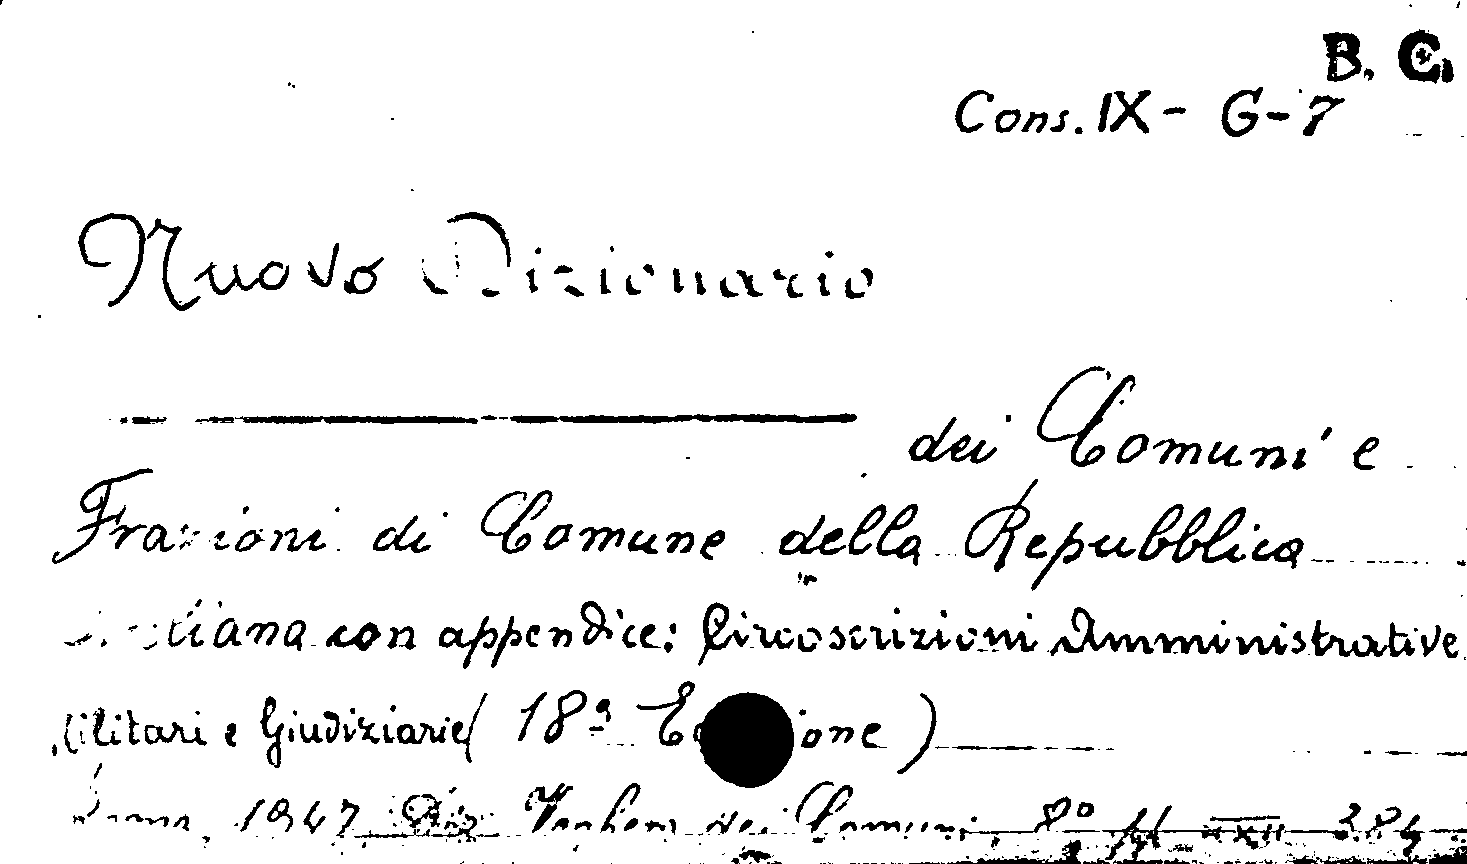 B. C.
Cons. IX - G-7
Nuovo Dizionario
dei Comuni e
Frazioni di Comune della Repubblica
Italiana con appendice: Circoscrizioni Amministrative
Militari e Giudiziarie (18ª Edizione)
Roma, 1947, Diz. Voghera dei Comuni, 8º